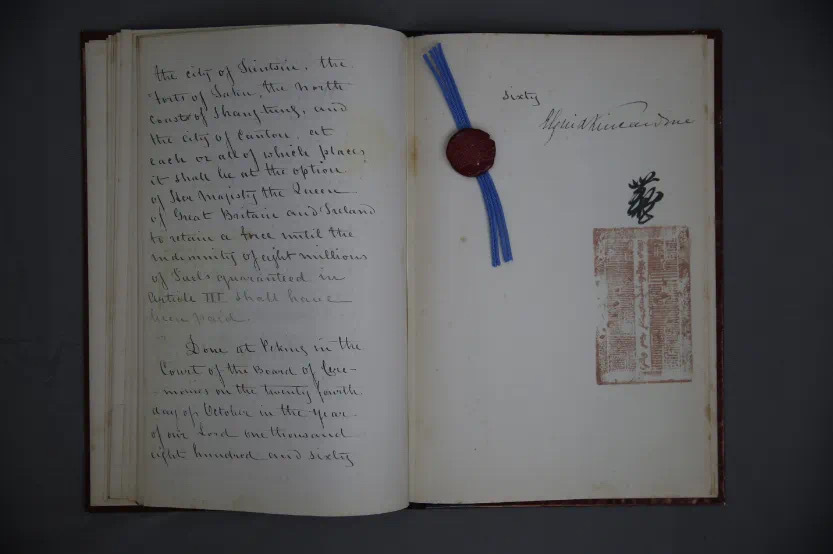 the city of Tientsin, the
forts of Taku, the north
coast of Shangtung, and
the city of Canton, at
each or all of which places
it shall be at the option
of Her Majesty the Queen
of Great Britain and Ireland
to retain a force until the
indemnity of eight millions
of Taels guaranteed in
Article III shall have
been paid.
Done at Peking in the
Court of the Board of Cere-
-monies on the twenty fourth
day of October in the year
of our Lord one thousand
eight hundred and sixty
sixty
Elgin & Kincardine